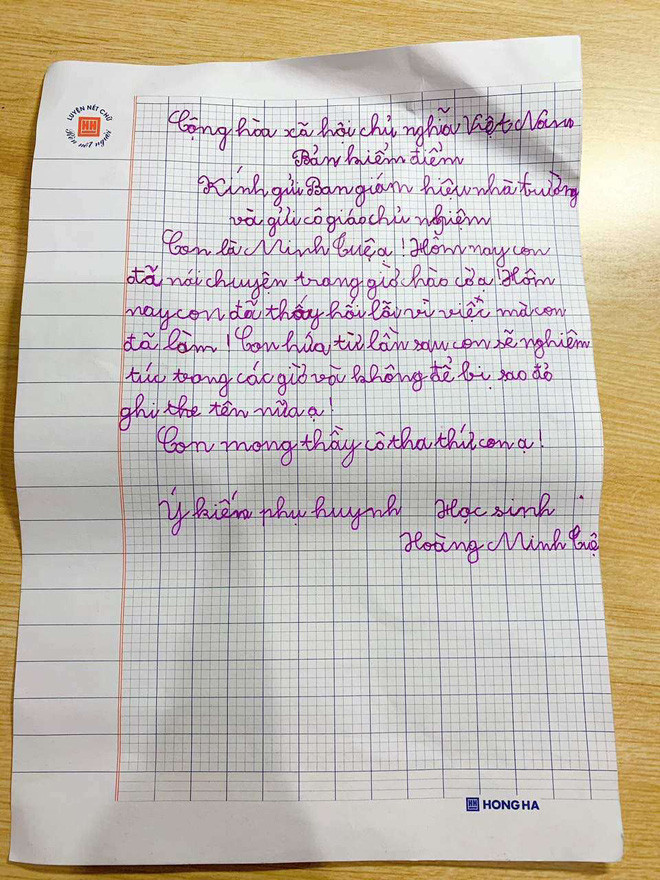 LUYỆN NÉT CHỮ
Rèn nết người
Cộng hòa xã hội chủ nghĩa Việt Nam
Bản kiểm điểm
Kính gửi Ban giám hiệu nhà trường
và gửi cô giáo chủ nghiệm
Con là Minh Tuệ ạ! Hôm nay con
đã nói chuyện trong giờ hào cờ ạ! Hôm
nay con đã thấy hối lỗi vì việc mà con
đã làm! Con hứa từ lần sau con sẽ nghiêm
túc trong các giờ và không để bị sao đỏ
ghi the tên nữa ạ!
Con mong thầy cô tha thứ con ạ!
Ý kiến phụ huynh Học sinh
Hoàng Minh Tuệ
HH HONG HA